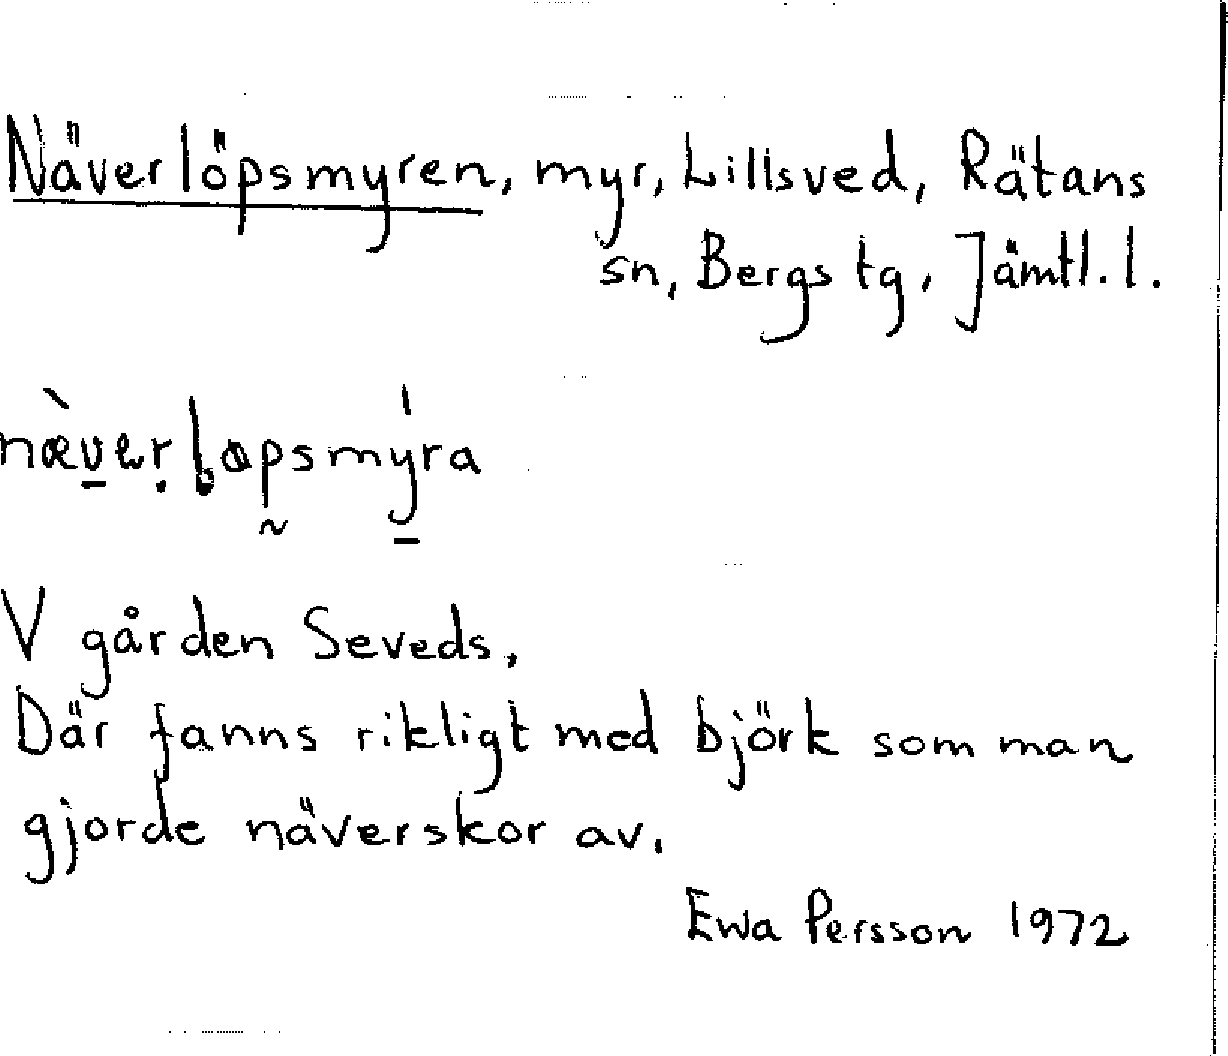 Näverlöpsmyren, myr, Lillsved, Rätans
sn, Bergs tg, Jämtl. l.
næ̀v̱erḷapsmýra
V gården Seveds,
Där fanns rikligt med björk som man
gjorde näverskor av.
Ewa Persson 1972